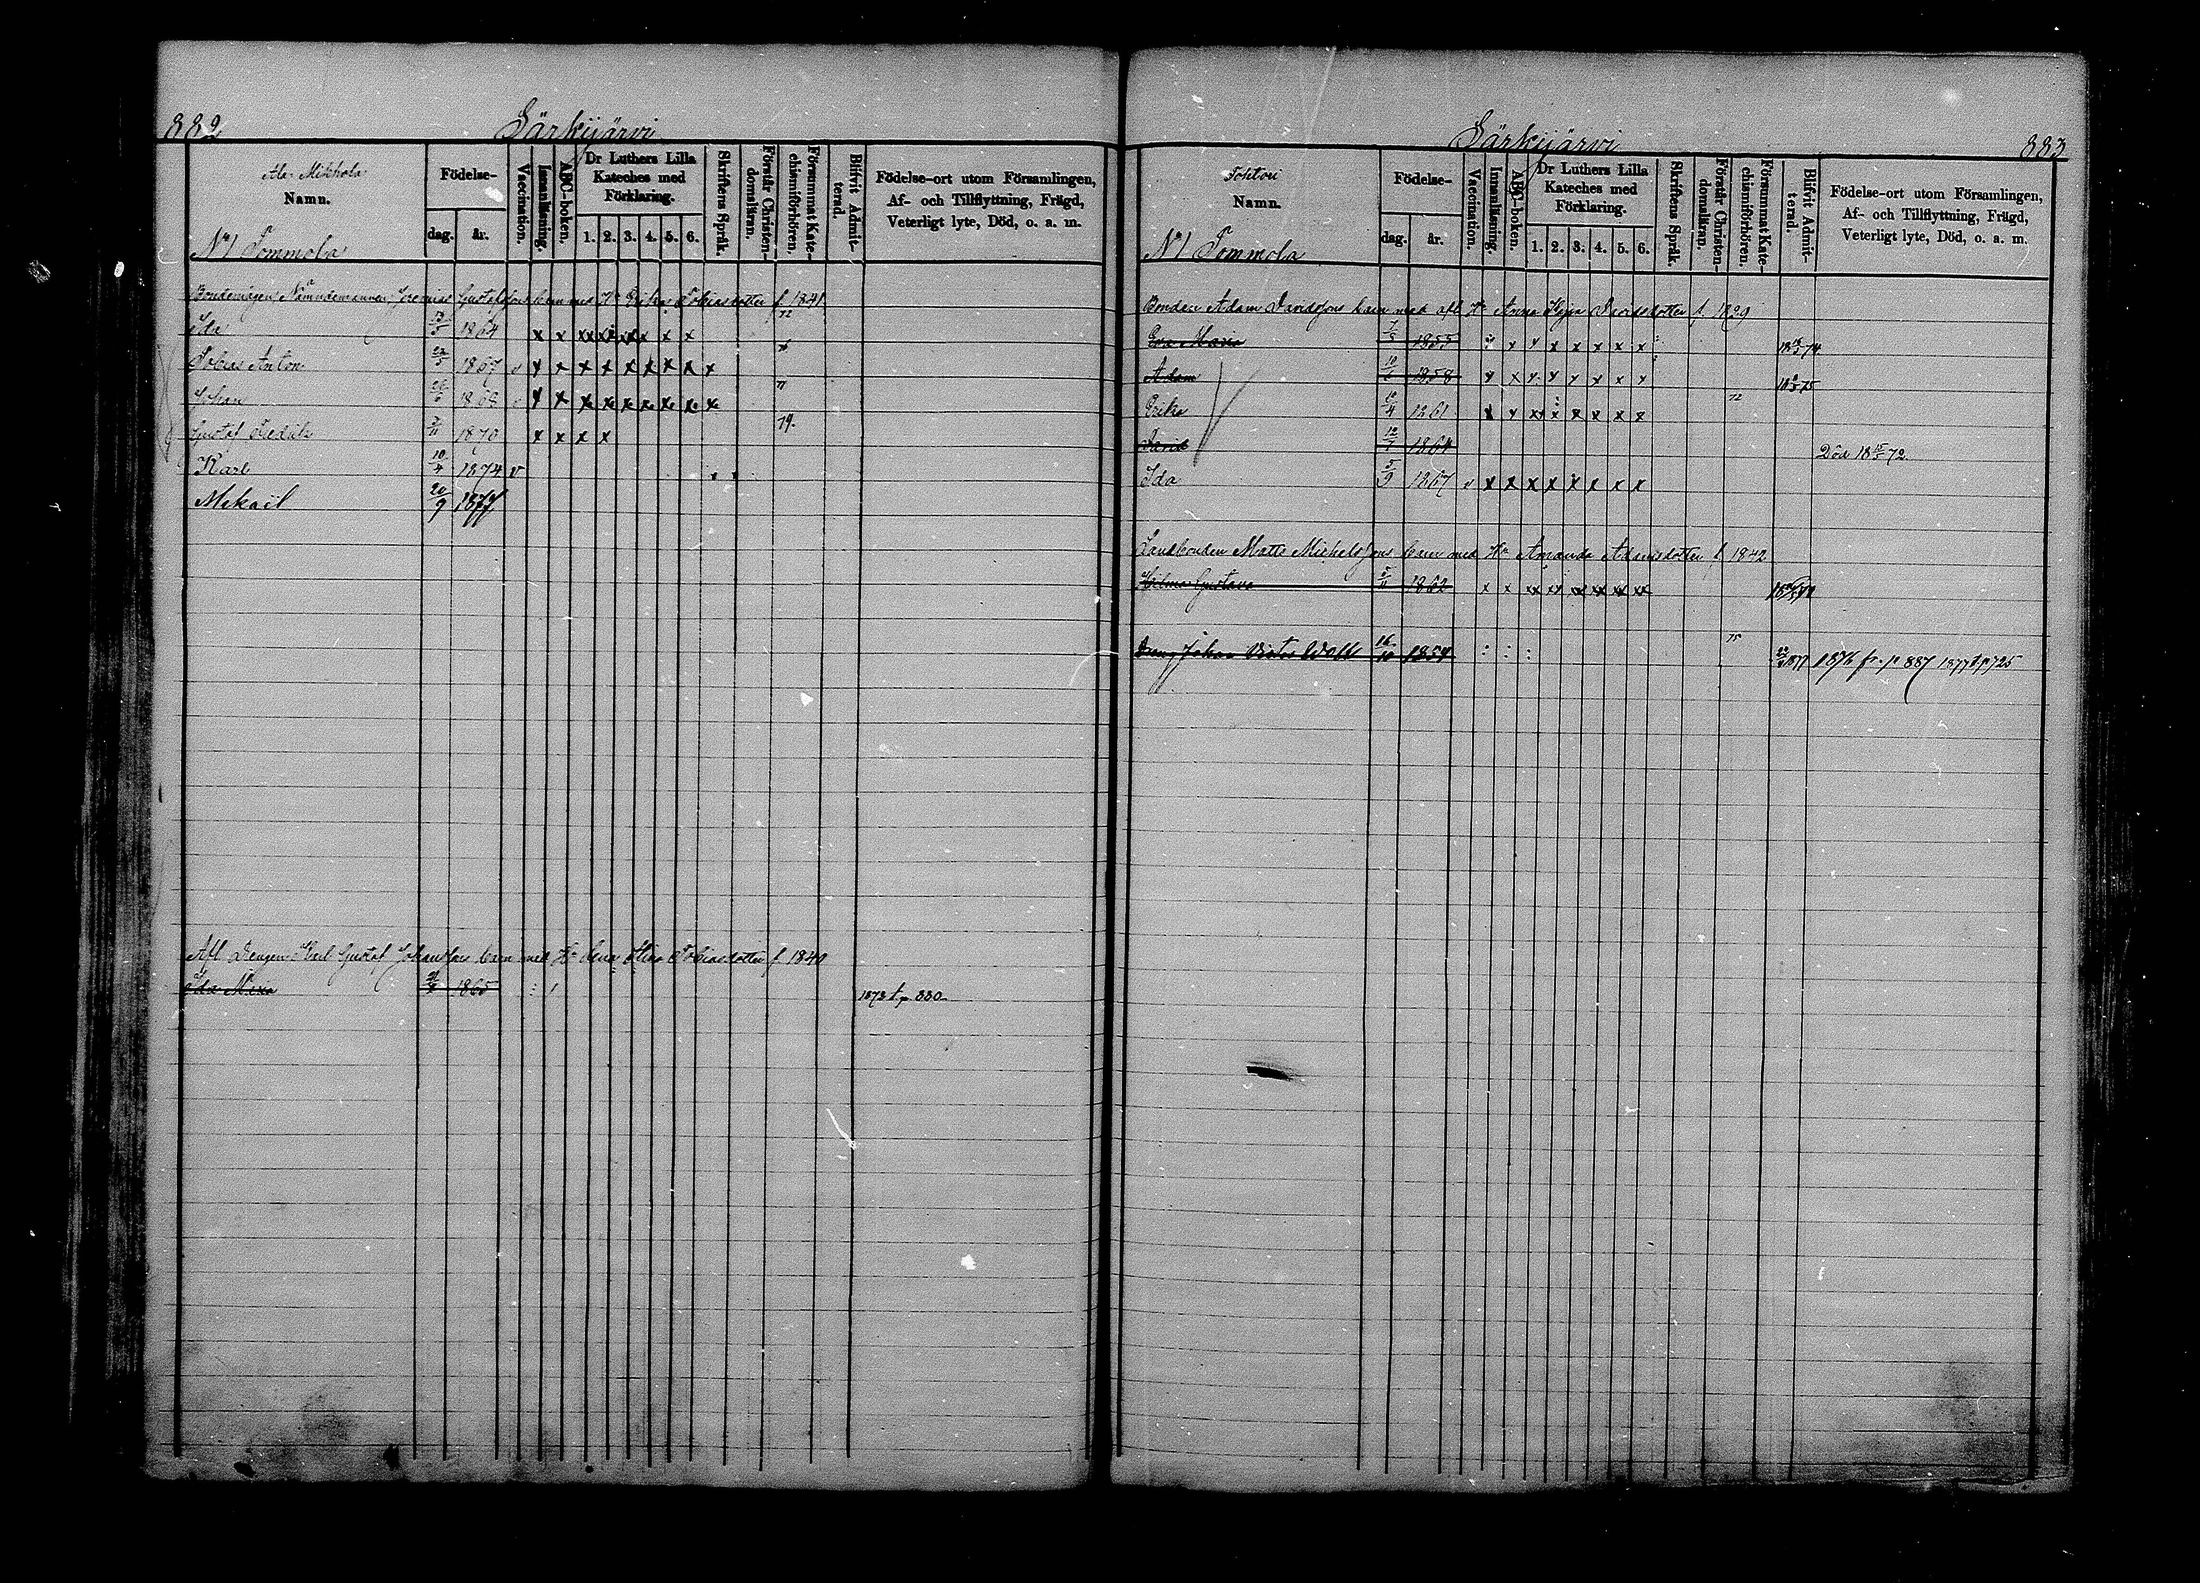 882
Särkijärvi
Ala Mikkola
Namn.
Födelse-
dag. år.
Vaccination.
Innanläsning.
ABC-boken.
Dr Luthers Lilla
Kateches med
Förklaring.
1. 2. 3. 4. 5. 6.
Skriftens Språk.
Förstår Christen-
domsläran.
Försummat Kate-
chismiförhören.
Blifvit Admit-
terad.
Födelse-ort utom Församlingen,
Af- och Tillflyttning, Frägd,
Veterligt lyte, Död, o. a. m.
No 1 Tommola
Nämndemannen Jeremias Gustafssons barn med Hu Erika Tobiasdotter f. 1841
Ida 1864 x x xx x x x x x 72
Tobias Anton 1867 v x x x x x x x x x
Johan v x x x x x x x x x "
Gustaf 2/11 1870 x x x x 79.
Karl 10/4 1874 v
Mikael 20/9 1877
Afl. Drengen Karl Gustaf Johanssons barn med Hu Lena Stina Tobiasdotter f 1840
Ida 1865 1873 t. p 880
883
Särkijärvi
Tohtori
Namn.
Födelse-
dag. år.
Vaccination.
Innanläsning.
ABC-boken.
Dr Luthers Lilla
Kateches med
Förklaring.
1. 2. 3. 4. 5. 6.
Skriftens Språk.
Förstår Christen-
domsläran.
Försummat Kate-
chismiförhören.
Blifvit Admit-
terad.
Födelse-ort utom Församlingen,
Af- och Tillflyttning, Frägd,
Veterligt lyte, Död, o. a. m.
No 1 Tommola
Bonden Adam Davidssons barn med afl. Hu Anna Kajsa Davidsdotter f. 1829
Eva Maria 1855 x x x x x x x
Adam 1858 x x x x x x x x
Erika 1861 x x x x x x x x 72
David 12/7 1864 Död 18 15/5 72.
Ida 5/9 1867 v x x x x x x x x
Landbonden Matts Michelssons barn med Hu Amanda Adamsdotter f. 1842
Hilma Gustava 5/11 1862 x x xx xx xx xx xx xx
Dreng Johan Victor Wall 16/10 1854 75 1876 fr. p 887 1877 t. p 725